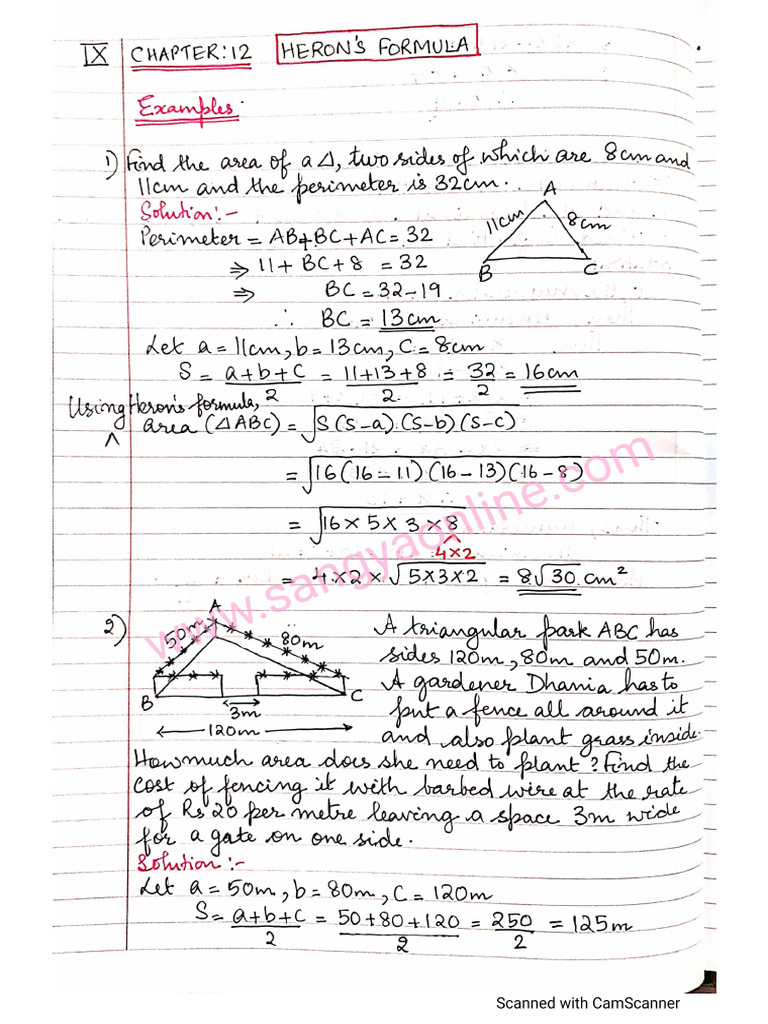 IX CHAPTER:12 HERON'S FORMULA
Examples:
1) Find the area of a Δ, two sides of which are 8cm and
11cm and the perimeter is 32cm.
Solution:-
A
11cm
8cm
B
C
Perimeter = AB+BC+AC = 32
⇒ 11+ BC+8 = 32
⇒ BC = 32-19.
∴ BC = 13cm
Let a = 11cm, b = 13cm, C = 8cm
S = a+b+c/2 = 11+13+8/2 = 32/2 = 16cm
Using Heron's formula,
area (ΔABC) = √S(S-a).(S-b)(S-c)
= √16(16-11)(16-13)(16-8)
= √16×5×3×8
4×2
= 4×2×√5×3×2 = 8√30 cm²
www.sangyaonline.com
2)
A
50m
80m
B
C
3m
120m
A triangular park ABC has
sides 120m, 80m and 50m.
A gardener Dhania has to
put a fence all around it
and also plant grass inside.
How much area does she need to plant? Find the
cost of fencing it with barbed wire at the rate
of Rs 20 per metre leaving a space 3m wide
for a gate on one side.
Solution:-
Let a = 50m, b = 80m, C = 120m
S = a+b+c/2 = 50+80+120/2 = 250/2 = 125m
Scanned with CamScanner